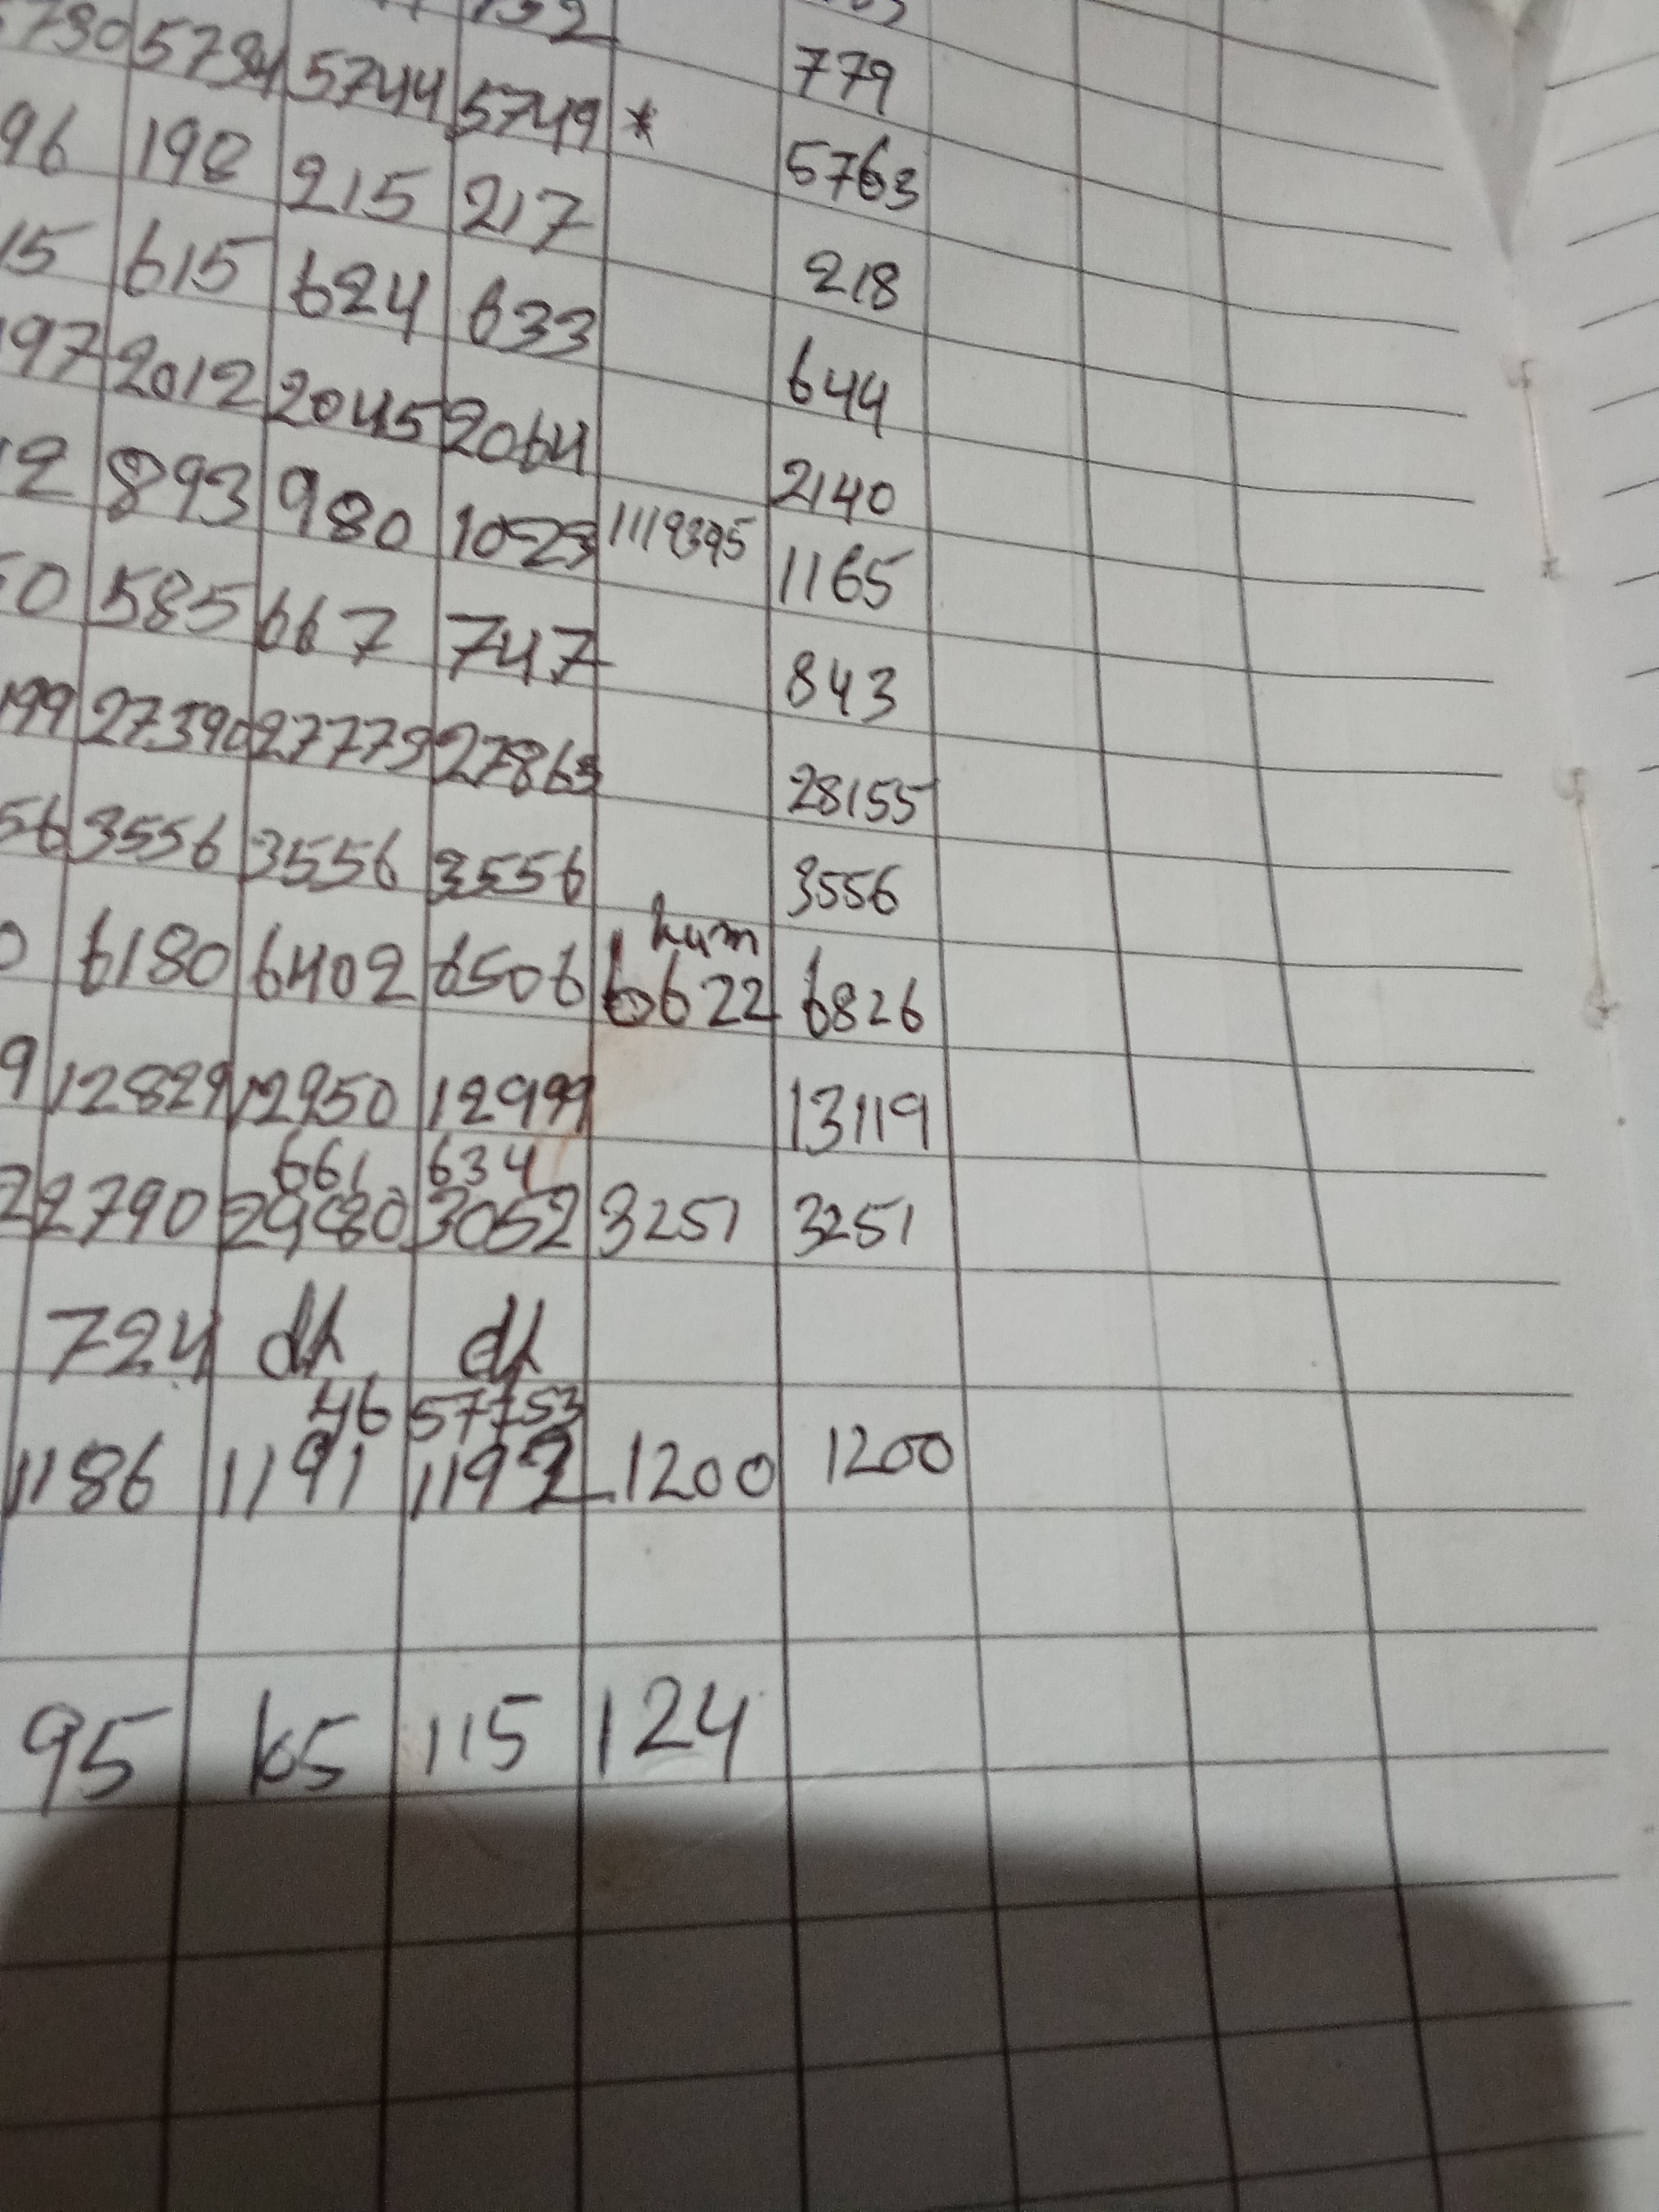 779
5730 5734 5744 5749 * 5763
96 198 215 217 218
15 615 624 633 644
97 2012 2045 2064 2140
2 893 980 1023 1119395 1165
0 585 667 747 843
199 27390 27773 27863 28155
56 3556 3556 3556 3556
hum
0 6180 6402 6506 6622 6826
9 12829 12950 12999 13119
661 634
2 2790 2980 3052 3251 3251
724 dh dh
46 57753
1186 1191 1192 1200 1200
95 105 115 124